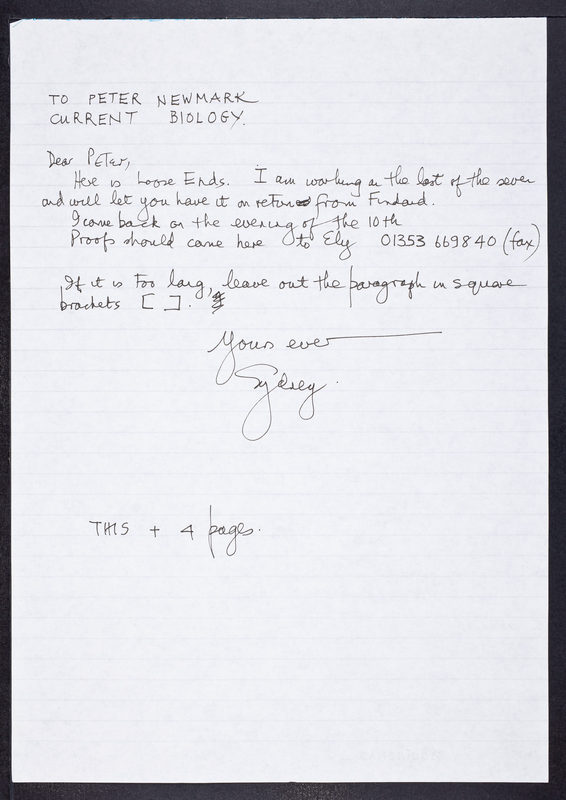 TO PETER NEWMARK
CURRENT BIOLOGY.
Dear Peter,
Here is Loose Ends. I am working on the last of the seven
and will let you have it on return from Finland.
I come back on the evening of the 10th
Proofs should come here to Ely 01353 669840 (fax)
If it is too long, leave out the paragraph in square
brackets [ ].
Yours ever
Sydney.
THIS + 4 pages.